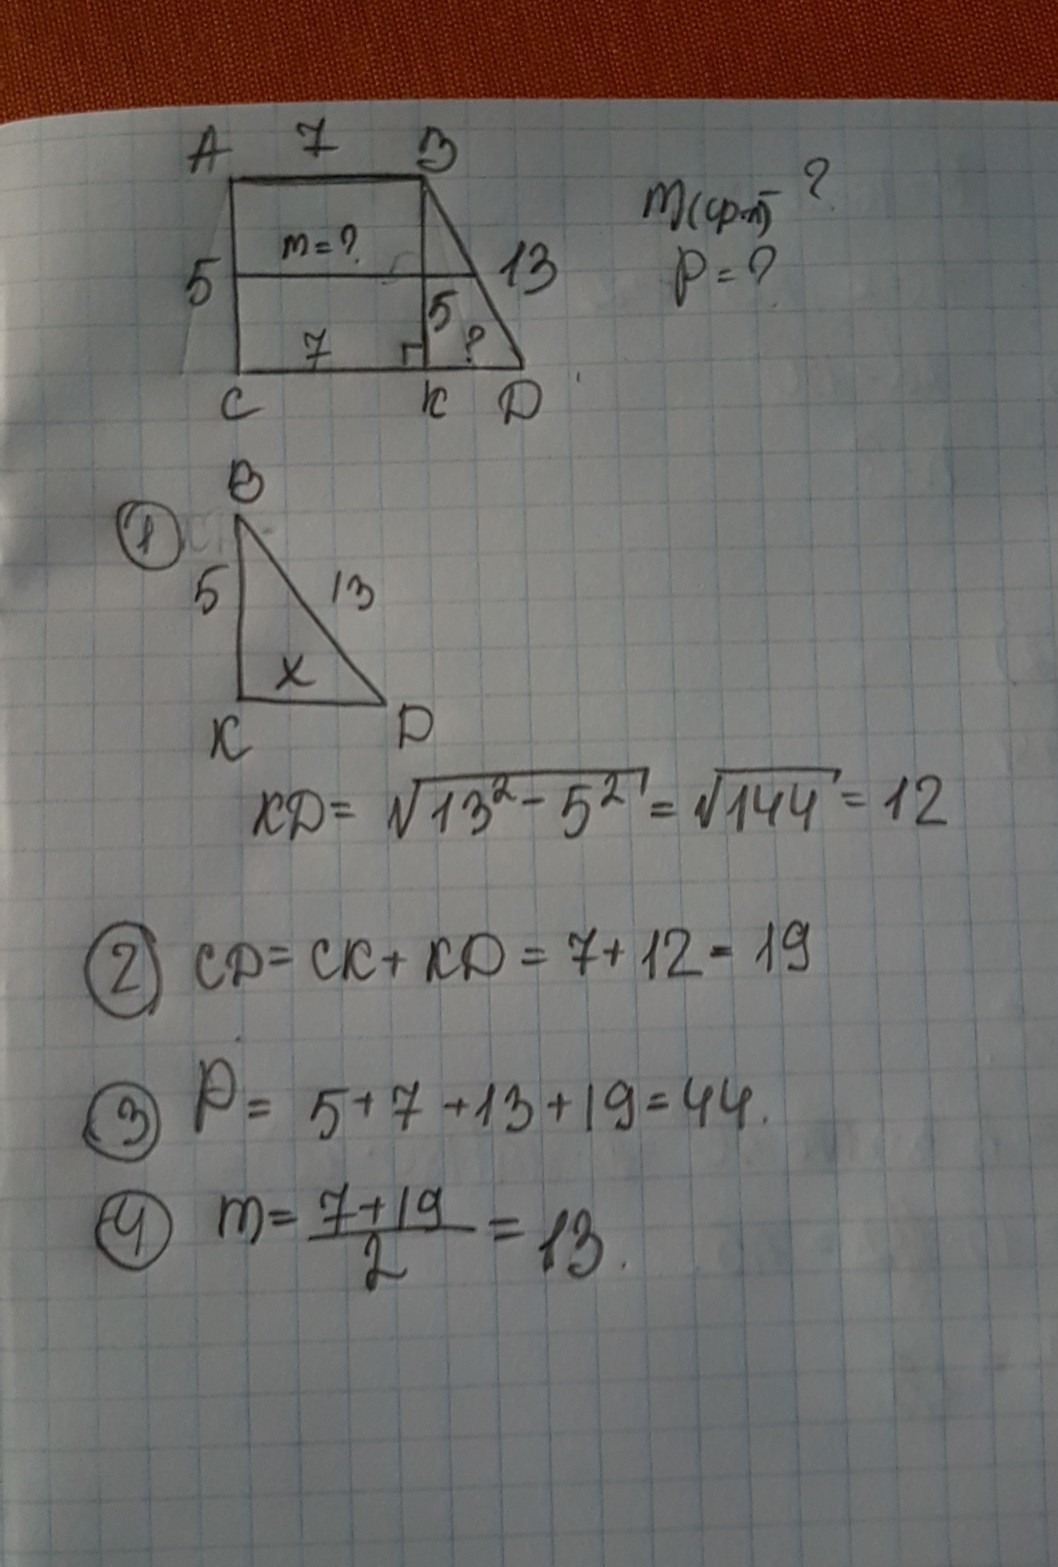 A 7 B
m(ср.л) - ?
m = ?
5 13 P = ?
5
7 ?
C K D
B
①
5 13
x
K D
KD = √13² - 5² = √144 = 12
② CD = CK + KD = 7 + 12 = 19
③ P = 5 + 7 + 13 + 19 = 44.
④ m = 7 + 19 / 2 = 13.